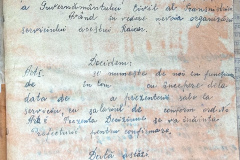 a Guvernământului Civil al Transnistriei
Având în vedere nevoia organizării
serviciului acestui Raion.
Decidem:
Art. I. se numește de noi în funcțiune
de în com. cu începere dela
data de a prezentării sale la
serviciu, cu salariul de conform ordin
Art. Prezenta Deciziune se va înainta
Prefecturii pentru confirmare.
Dată astăzi